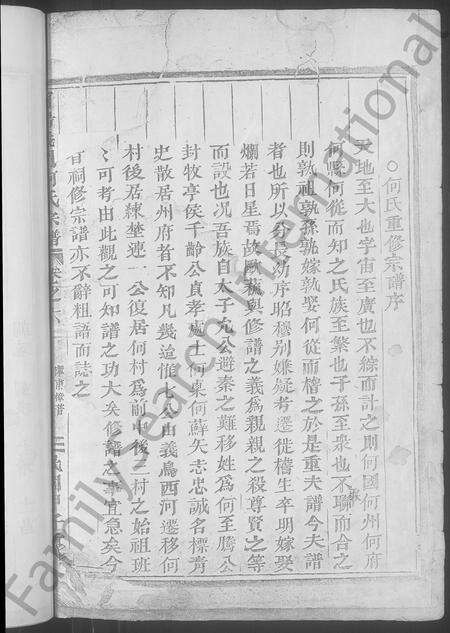 ○何氏重修宗譜序
天地至大也宇宙至廣也不綜而計之則何國何州何府
何縣何從而知之氏族至繁也子孫至衆也不聯而合之
則孰祖孰孫孰嫁孰娶何從而稽之於是重夫譜今夫譜
者也所以分長幼序昭穆别嫌疑考遷徙稽生卒明嫁娶
爛若日星焉故歐蘇與修譜之義爲親親之殺尊賢之等
而設也况吾族自太子允公避秦之難移姓爲何至騰公
封牧亭侯千齡公貞孝處士何㮚何蘇矢志忠誠名標青
史散居州府者不知凡幾這惟 公由義烏西河遷移何
村後居練塗連一公復居何村爲前村後三村之始祖班
班可考由此觀之可知譜之功大矣修譜之事宜急矣今
百祠修宗譜亦不辭粗語而誌之
何氏宗譜
卷之
Family Search International